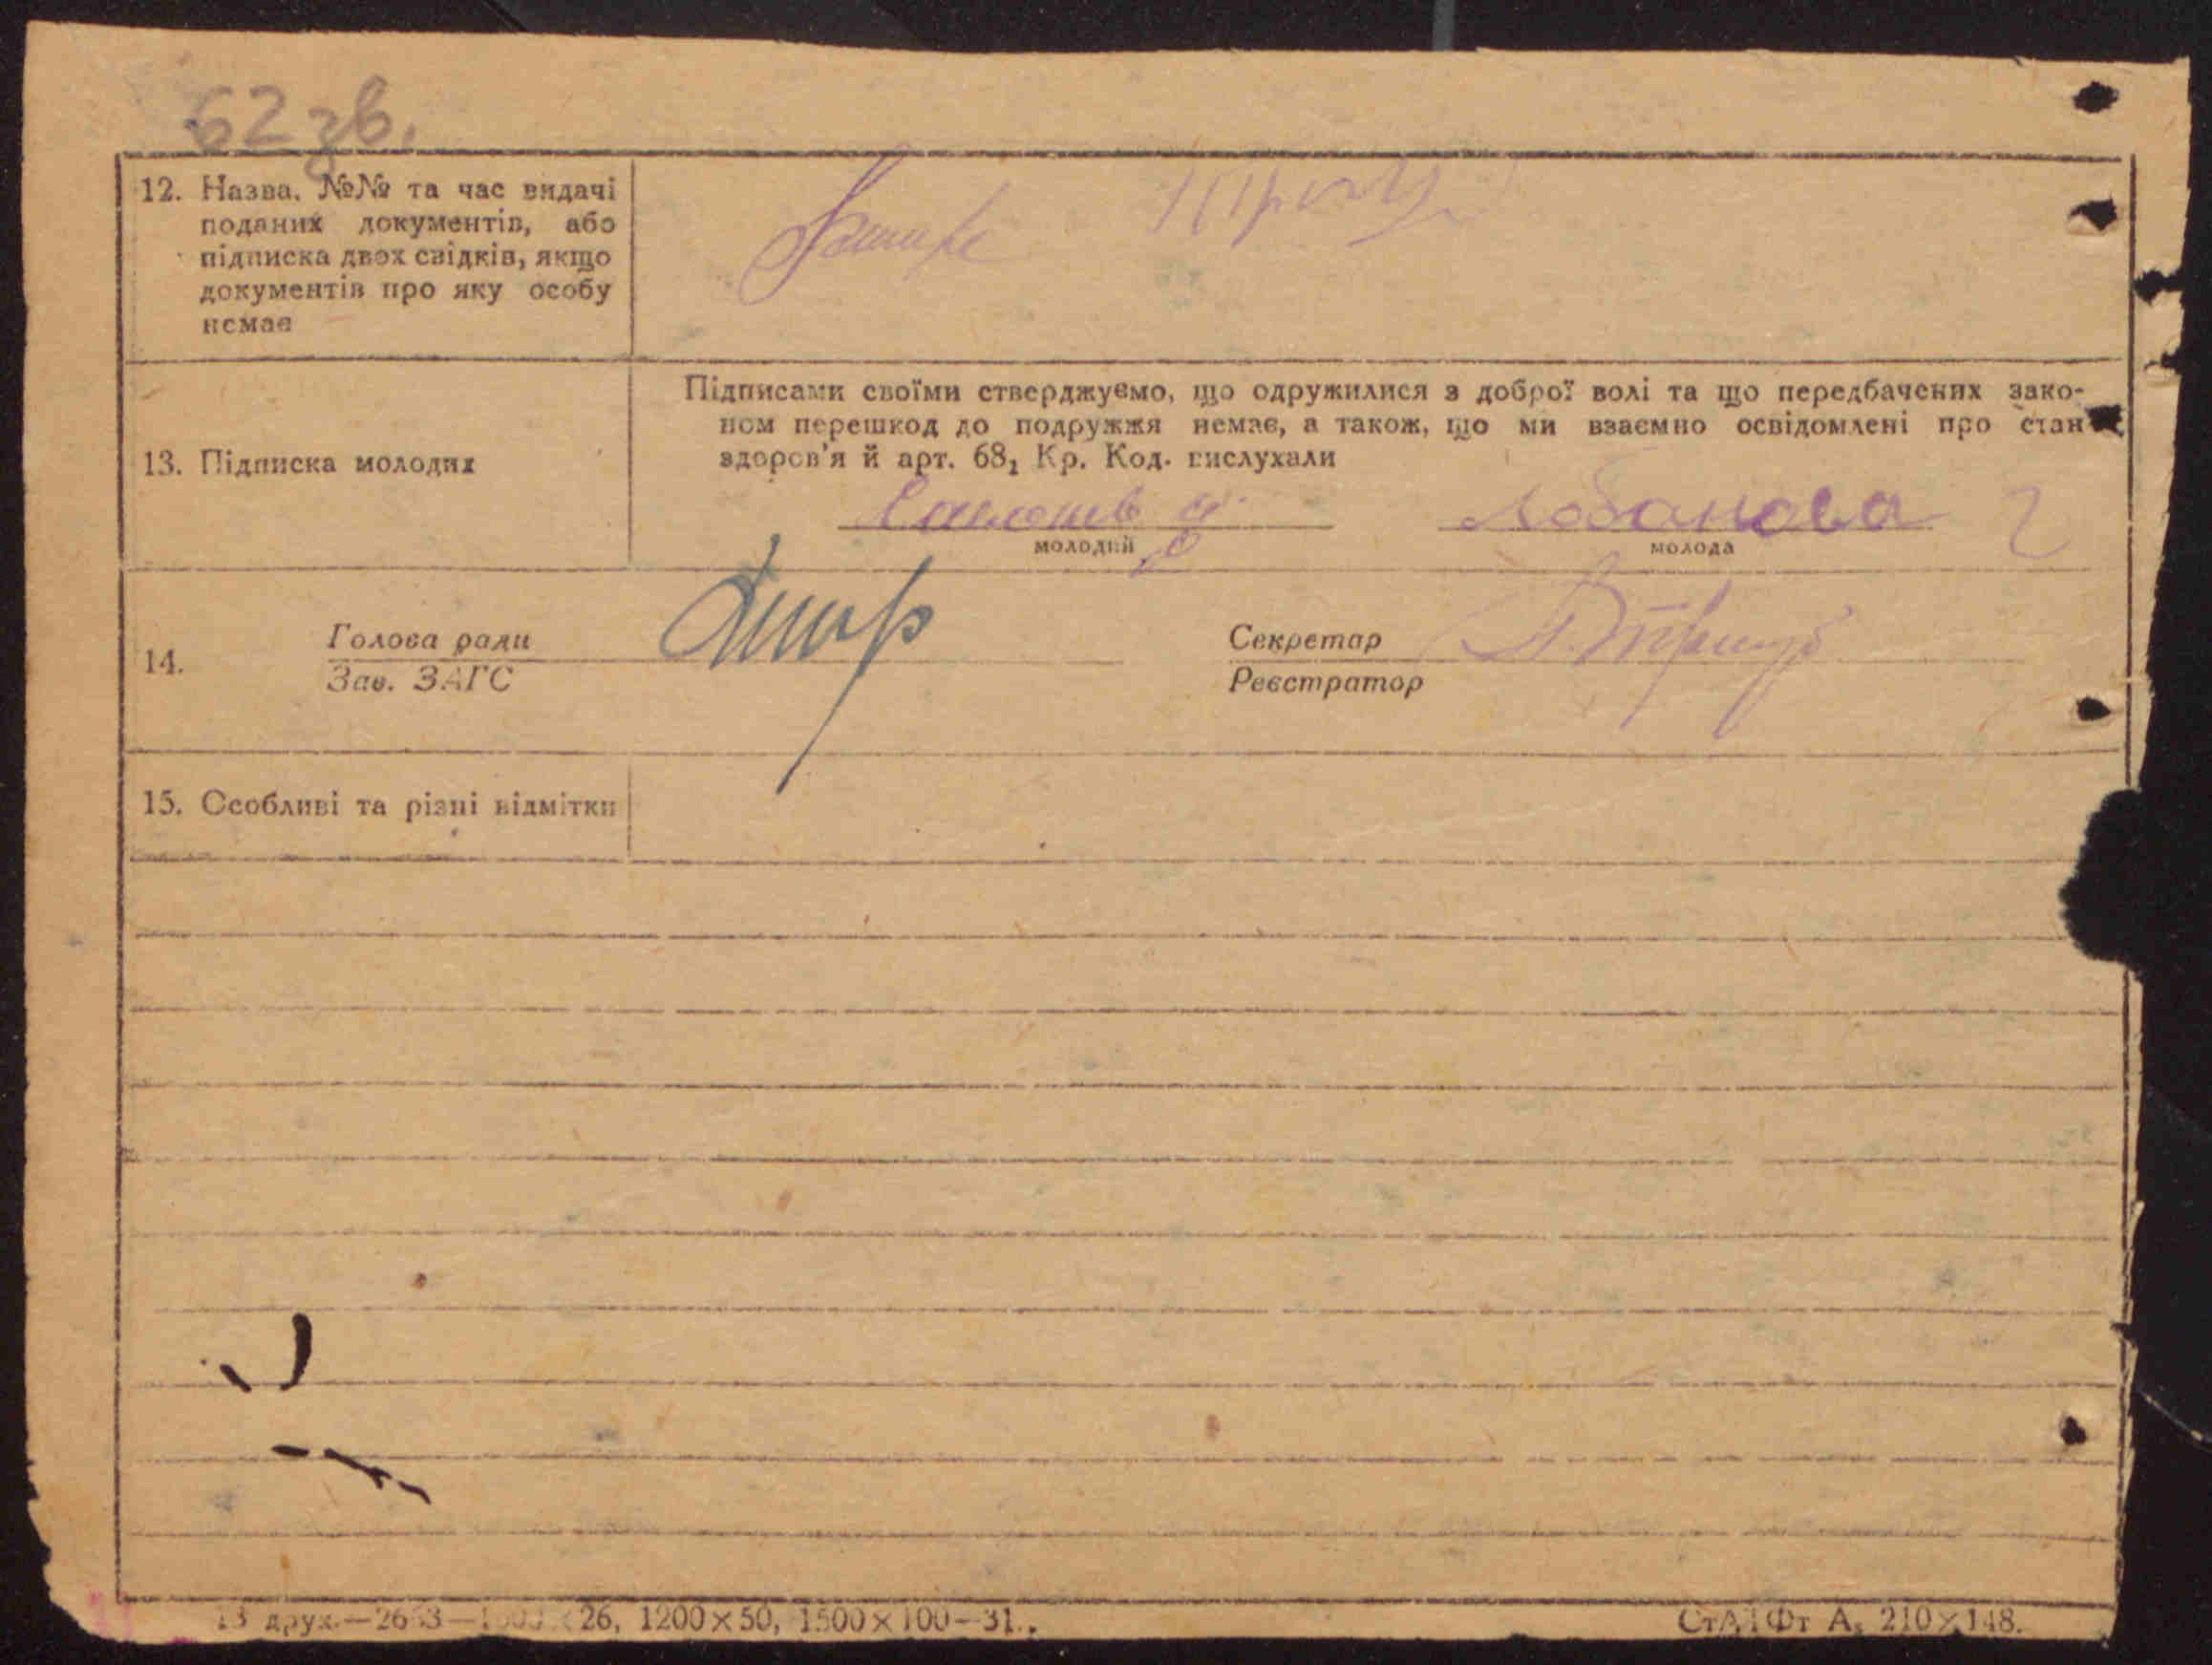 62 зв.
12. Назва, №№ та час видачі
поданих документів, або
підписка двох свідків, якщо
документів про яку особу
немає
13. Підписка молодих
Підписами своїми стверджуємо, що одружилися з доброї волі та що передбачених зако-
ном перешкод до подружжя немає, а також, що ми взаємно освідомлені про стан
здоров'я й арт. 68₁ Кр. Код. вислухали
Лобанова Г
молодий
молода
14.
Голова ради
Зав. ЗАГС
Секретар
Реєстратор
15. Особливі та різні відмітки
друх.—26 26, 1200×50, 1500×100—31.
А₅ 210×148.